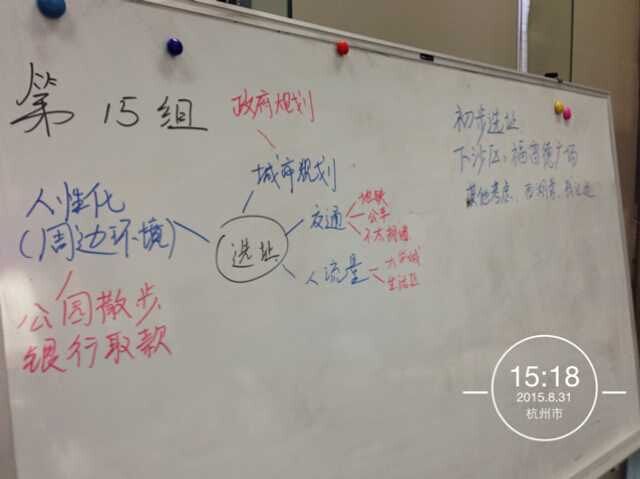 第15组
政府规划
城市规划
人性化
(周边环境)
选址
交通
地铁
公车
不太拥堵
人流量
大学城
生活区
公园散步
银行取款
初步选址
下沙区:福雷德广场
其他考虑
15:18
2015.8.31
杭州市